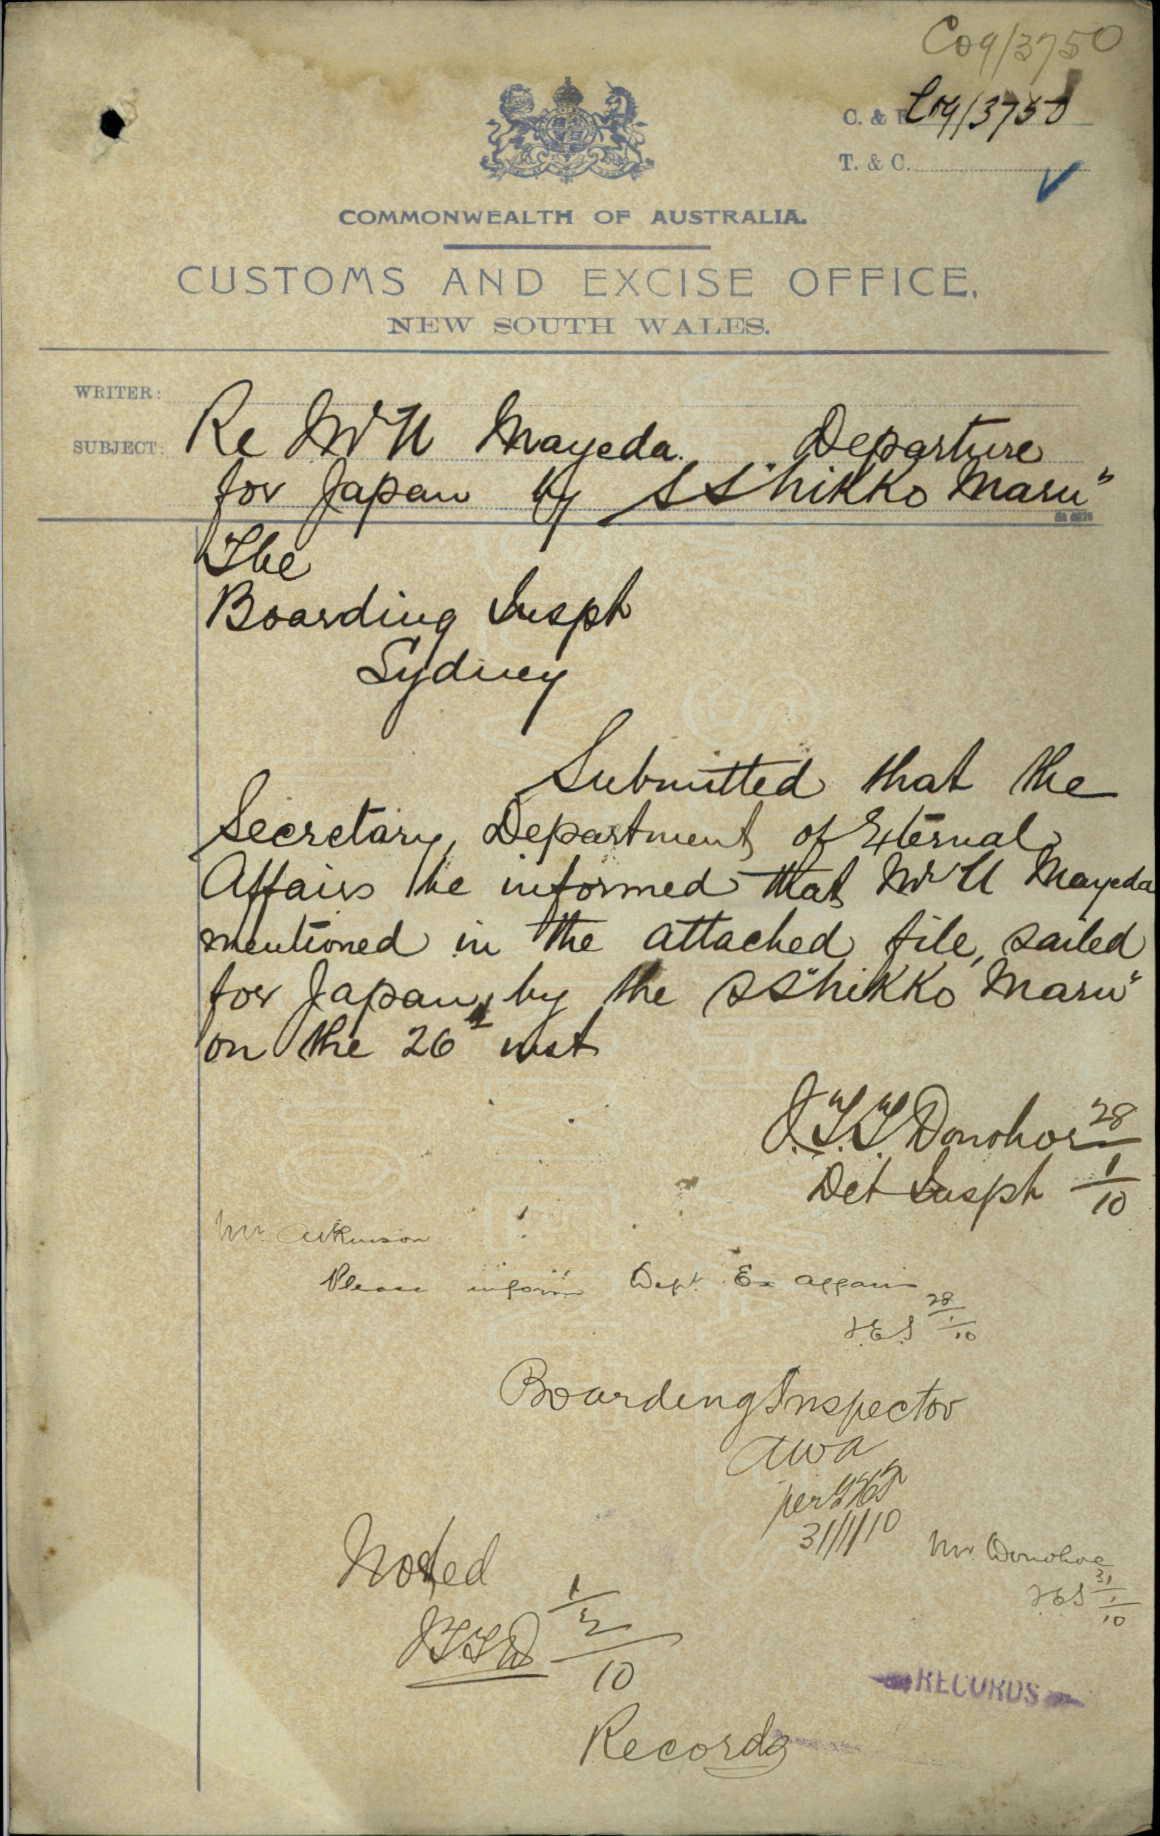 C09/3750
C. & E. C09/3750
T. & C.
COMMONWEALTH OF AUSTRALIA.
CUSTOMS AND EXCISE OFFICE,
NEW SOUTH WALES.
WRITER:
SUBJECT: Re Mr U Mayeda. Departure
for Japan by SS "Nikko Maru"
The
Boarding Inspr
Sydney
Submitted that the
Secretary, Department of External
Affairs be informed that Mr U Mayeda
mentioned in the attached file, sailed
for Japan, by the SS "Nikko Maru"
on the 26th inst
J.T.T. Donohoe 28/1/10
Det Inspr
Mr. Atkinson
Please inform Dept. Ex Affairs
28/1/10
Boarding Inspector
AWA
per
31/1/10
Mr. Donohoe
31/1/10
Noted
JTTD 1/2/10
RECORDS
Records